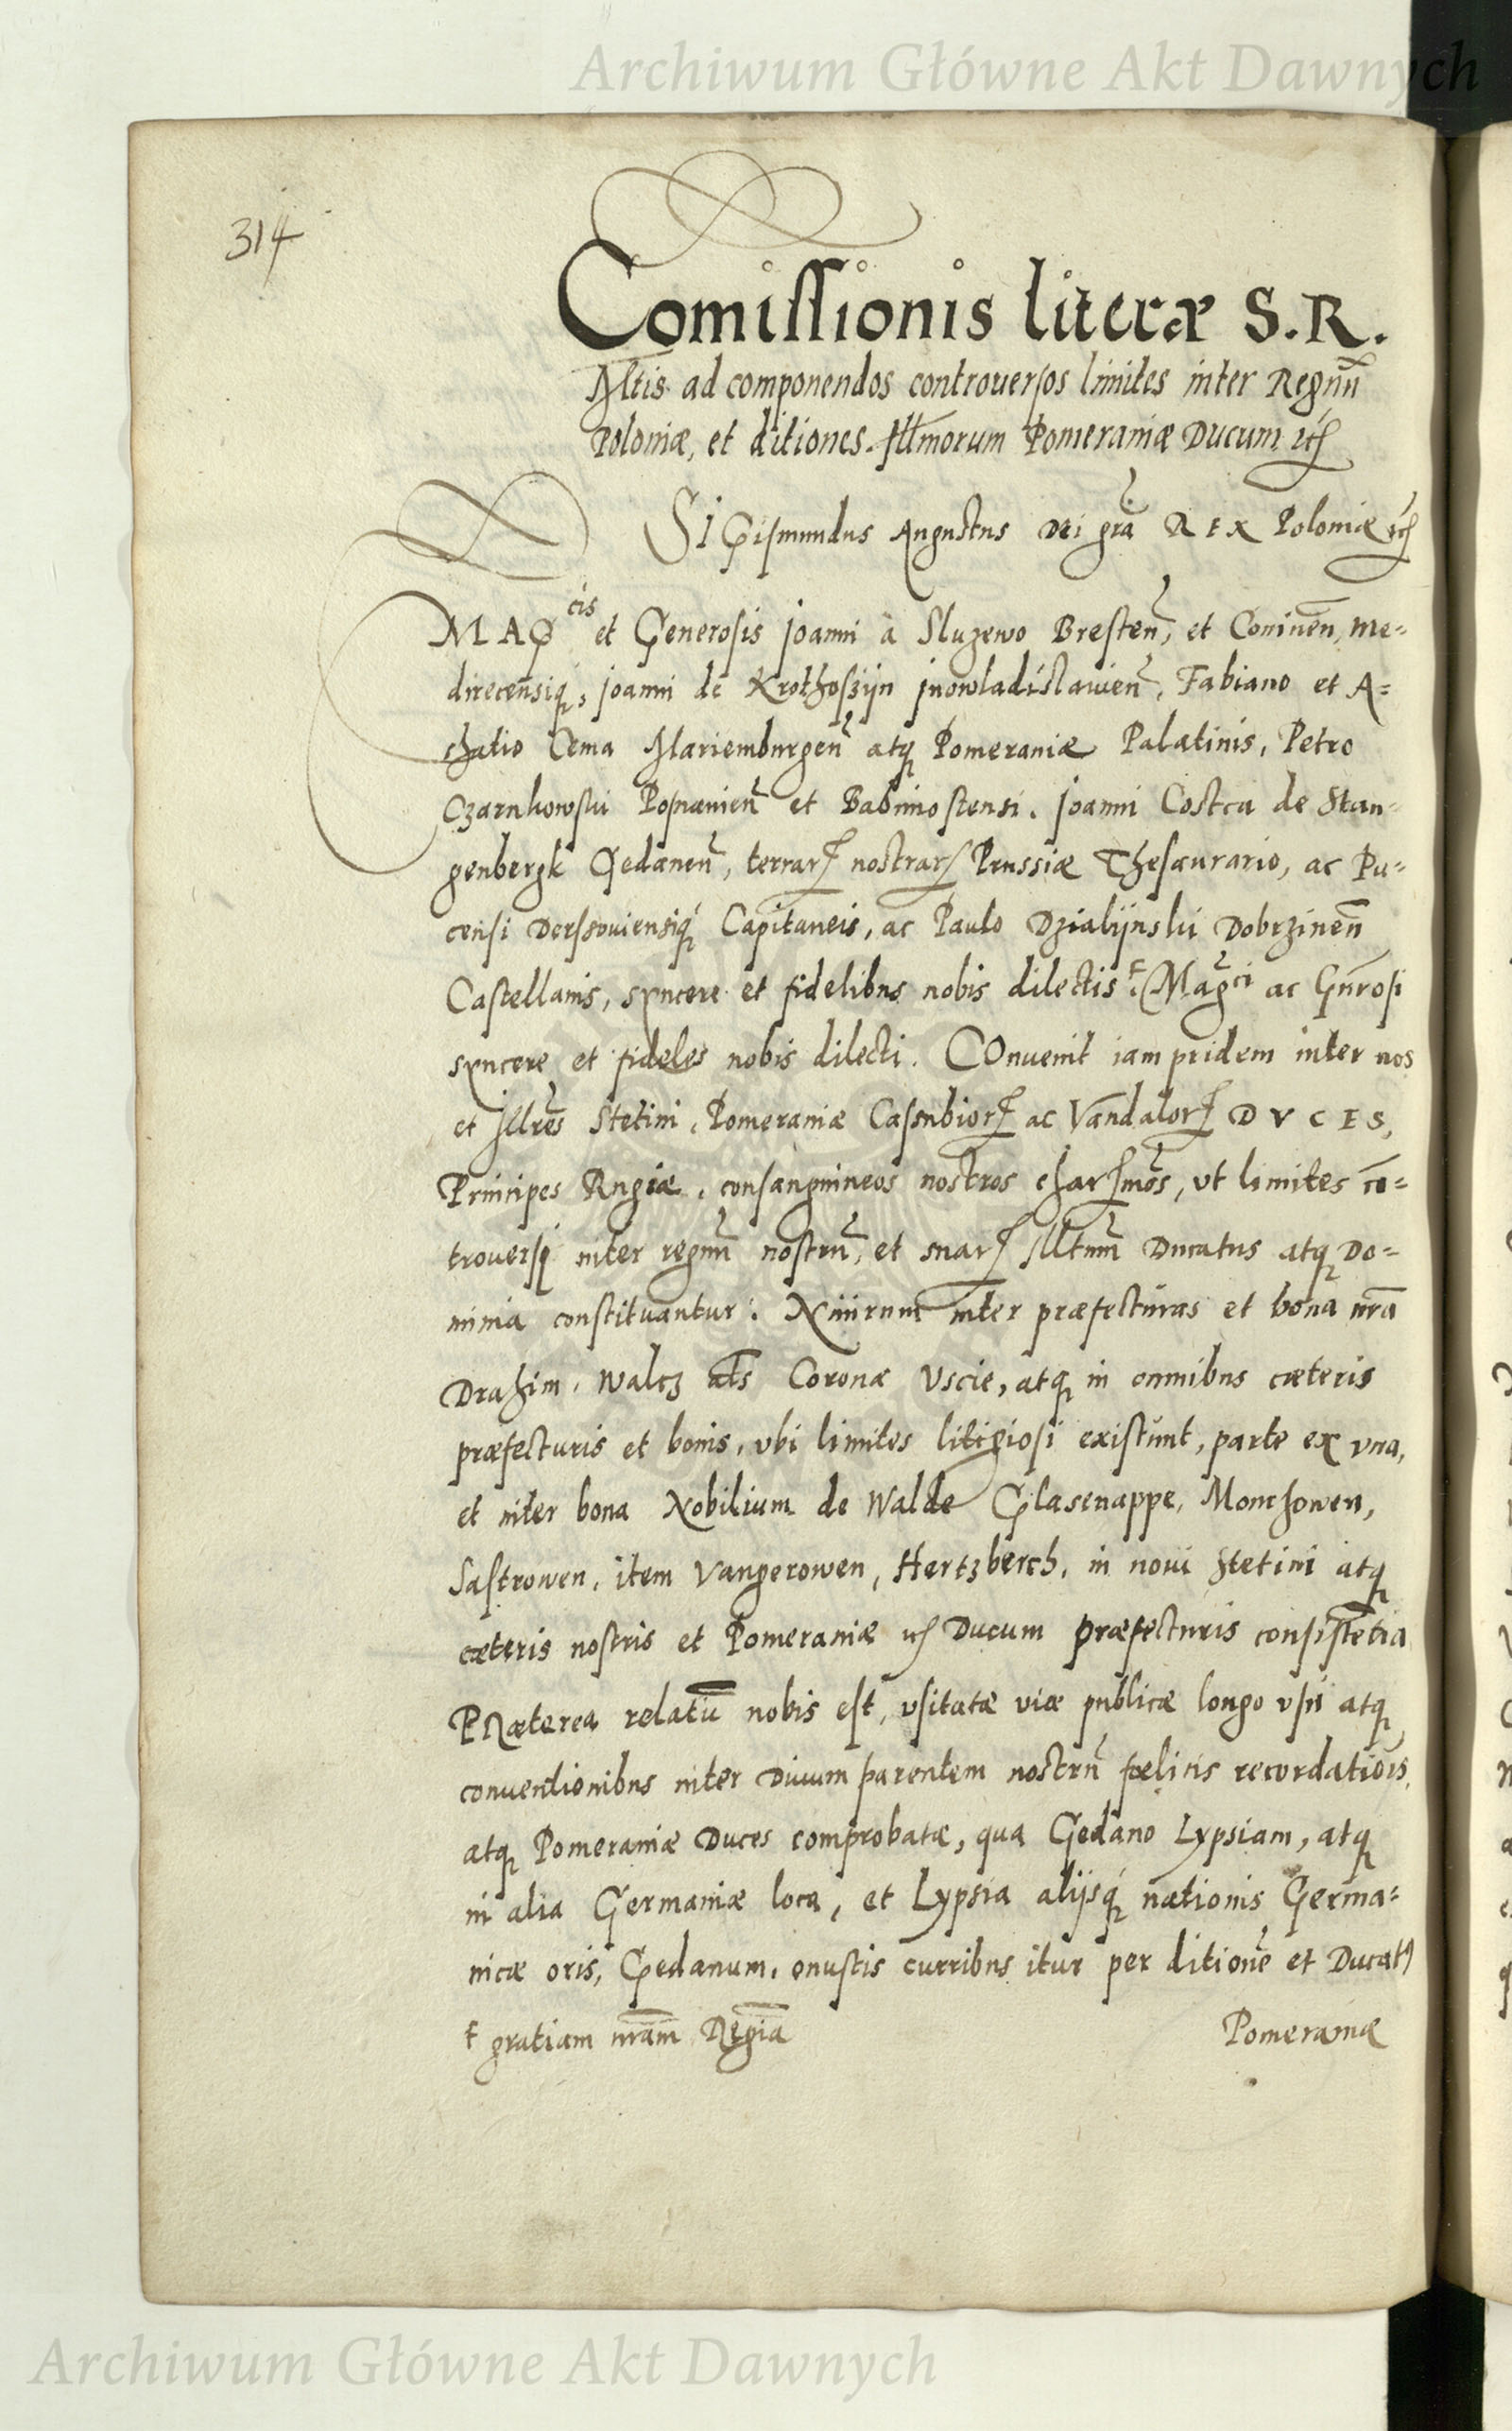 Archiwum Główne Akt Dawnych
314
Comissionis literæ S. R.
Mtis ad componendos controuersos limites inter Regnũ
Poloniæ, et ditiones Illmorum Pomeraniæ Ducum etc
SIGismundus Augustus Dei grã REX Poloniæ etc
MAGcis et Generosis Joanni à Sluzewo Bresteñ, et Conineñ, Me=
direcensiq, Joanni de Krothoszijn Jnowladislauieñ, Fabiano et A=
chatio Cema Mariemburgeñ atq Pomeraniæ Palatinis, Petro
Czarnkowski Posnanieñ et Babimostensi, Joanni Costca de Stan-
genbergk Gedaneñ, terrar nostrar Prussiæ Thesaurario, ac Pu-
censi Derssouiensiq Capitaneis, ac Paulo Dzialijnski Dobrzineñ
Castellanis, syncere et fidelibus nobis dilectis Magci ac Gnrosi
syncere et fideles nobis dilecti. COnuenit iam pridem inter nos
et Jllres Stetini, Pomeraniæ Cassubior ac Vandalor DVCES,
Principes Rugiæ, consanguineos nostros charmos, vt limites cō=
trouersi inter regnũ nostrũ, et suar Illtum Ducatus atq Do=
minia constituantur. Nimirum inter præfecturas et bona nrã
Drahim, Walcz als Coronæ Vscie, atq in omnibus cæteris
præfecturis et bonis, vbi limites litigiosi existunt, parte ex vna,
et inter bona Nobilium de Walde Glasenappe, Monchowen,
Sastrowen, item Vangerowen, Hertzberch, in noui Stetini atq
cæteris nostris et Pomeraniæ etc Ducum præfecturis consistẽtia
PRæterea relatũ nobis est, vsitatæ viæ publicæ longo vsu atq
conuentionibus inter Diuum parentem nostrũ fœlicis recordatiõis,
atq Pomeraniæ Duces comprobatæ, qua Gedano Lypsiam, atq
in alia Germaniæ loca, et Lypsia alijsq nationis Germa=
nicæ oris, Gedanum, onustis curribus itur per ditionẽ et Ducat9
+ gratiam nrãm Regiã
Pomeraniæ
Archiwum Główne Akt Dawnych